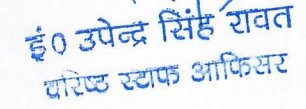 इं0 उपेन्द्र सिंह रावत
वरिष्ठ स्टाफ आफिसर